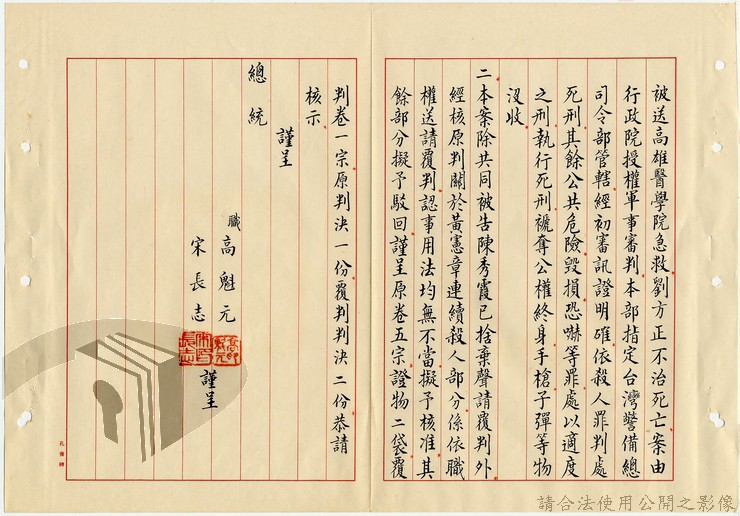 被送高雄醫學院急救劉方正不治死亡案由
行政院授權軍事審判本部指定台灣警備總
司令部管轄經初審訊證明確依殺人罪判處
死刑其餘公共危險毀損恐嚇等罪處以適度
之刑執行死刑褫奪公權終身手槍子彈等物
沒收
二本案除共同被告陳秀霞已捨棄聲請覆判外
經核原判關於黃憲章連續殺人部分係依職
權送請覆判認事用法均無不當擬予核准其
餘部分擬予駁回謹呈原卷五宗證物二袋覆
判卷一宗原判決一份覆判判決二份恭請
核示
謹呈
總統
職高魁元
宋長志
謹呈
請合法使用公開之影像